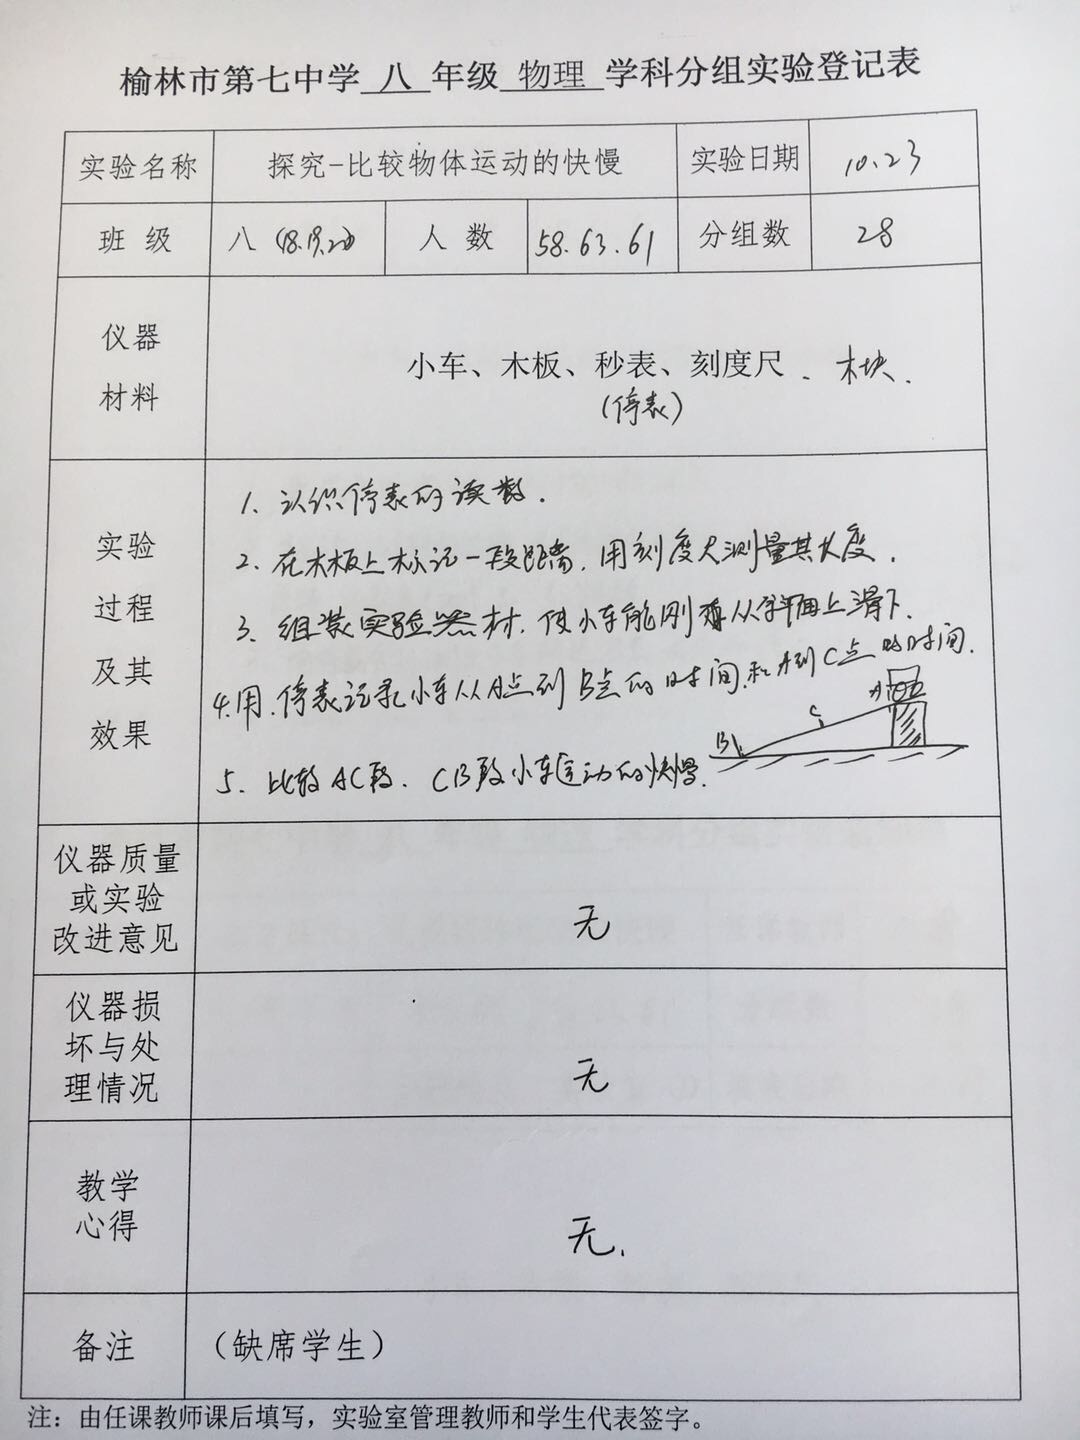 榆林市第七中学 八 年级 物理 学科分组实验登记表
实验名称 探究-比较物体运动的快慢 实验日期 10.23
班 级 八 (18.19.20) 人 数 58.63.61 分组数 28
仪器
材料
小车、木板、秒表、刻度尺、木块.
(停表)
实验
过程
及其
效果
1、认识停表的读数.
2、在木板上标记一段距离,用刻度尺测量其长度.
3、组装实验器材,使小车能刚好从斜面上滑下.
4.用.停表记录小车从A点到B点的时间.和A到C点的时间.
A
C
B
5、比较AC段、CB段小车运动的快慢.
仪器质量
或实验
改进意见
无
仪器损
坏与处
理情况
无
教学
心得
无.
备注 (缺席学生)
注：由任课教师课后填写，实验室管理教师和学生代表签字。